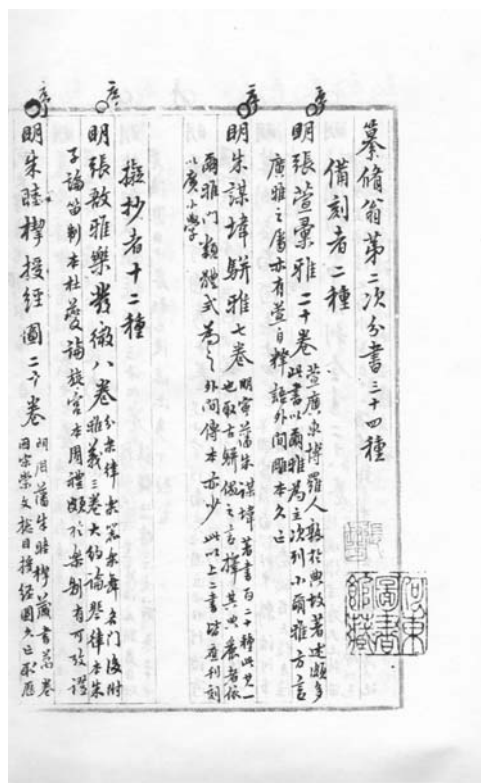 纂脩翁第二次分書三十四種
備刻者二種
序
明張萱彙雅二十卷 萱廣東博羅人熟於典故著述頗多
此書以爾雅為主次列小爾雅方言
廣雅之屬亦有萱自釋語外間雕本久亡
序
明朱謀㙔駢雅七卷 明寧藩朱謀㙔著書百二十種此其一
也取古駢偶之言擇其典麗者依
爾雅門類體式為之外間傳本亦少 此以上二書皆應刊刻
以廣小學
擬抄者十二種
序
明張敔雅樂發微八卷 分朱律 樂舞各門後附
雅義三卷大約論琴律本朱
子論笛制本杜夔論旋宮本周禮頗於樂制有可攷證
序
明朱睦㮮授經圖二十卷 明周藩朱睦㮮藏書萬卷
因宗崇文總目授經圖久亡